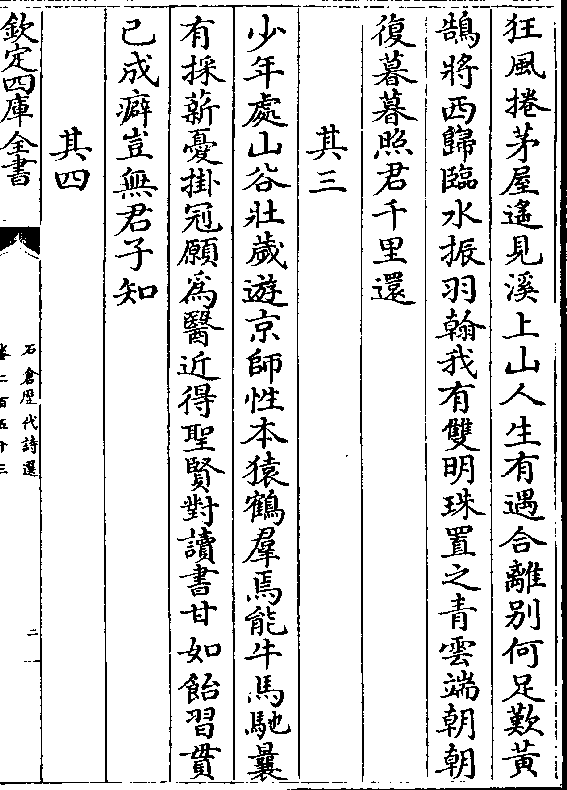 狂風捲茅屋遙見溪上山人生有遇合離别何足歎黄
鵠將西歸臨水振羽翰我有雙明珠置之青雲端朝朝
復暮暮照君千里還
其三
少年處山谷壯歲遊京師性本猿鶴羣焉能牛馬馳曩
有採薪憂掛冠願為醫近得聖賢對讀書甘如飴習貫
已成癖豈無君子知
其四
欽定四庫全書
石倉歴代詩選
卷二百五十三
二